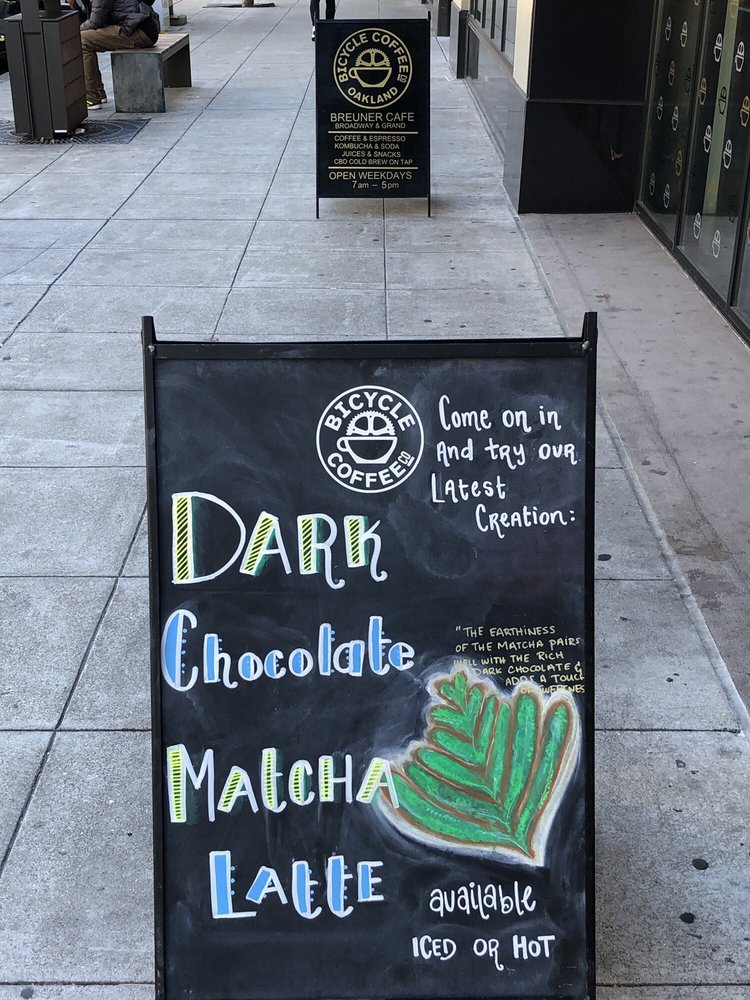 BICYCLE COFFEE CO
OAKLAND
BREUNER CAFE
BROADWAY & GRAND
COFFEE & ESPRESSO
KOMBUCHA & SODA
JUICES & SNACKS
CBD COLD BREW ON TAP
OPEN WEEKDAYS
7am – 5pm
BICYCLE
COFFEE CO
Come on in
And try our
Latest
Creation:
DARK
Chocolate
MAtCHA
LAtte
"THE EARTHINESS
OF THE MATCHA PAIRS
WELL WITH THE RICH
DARK CHOCOLATE &
ADDS A TOUCH
OF
available
ICED OR HOT